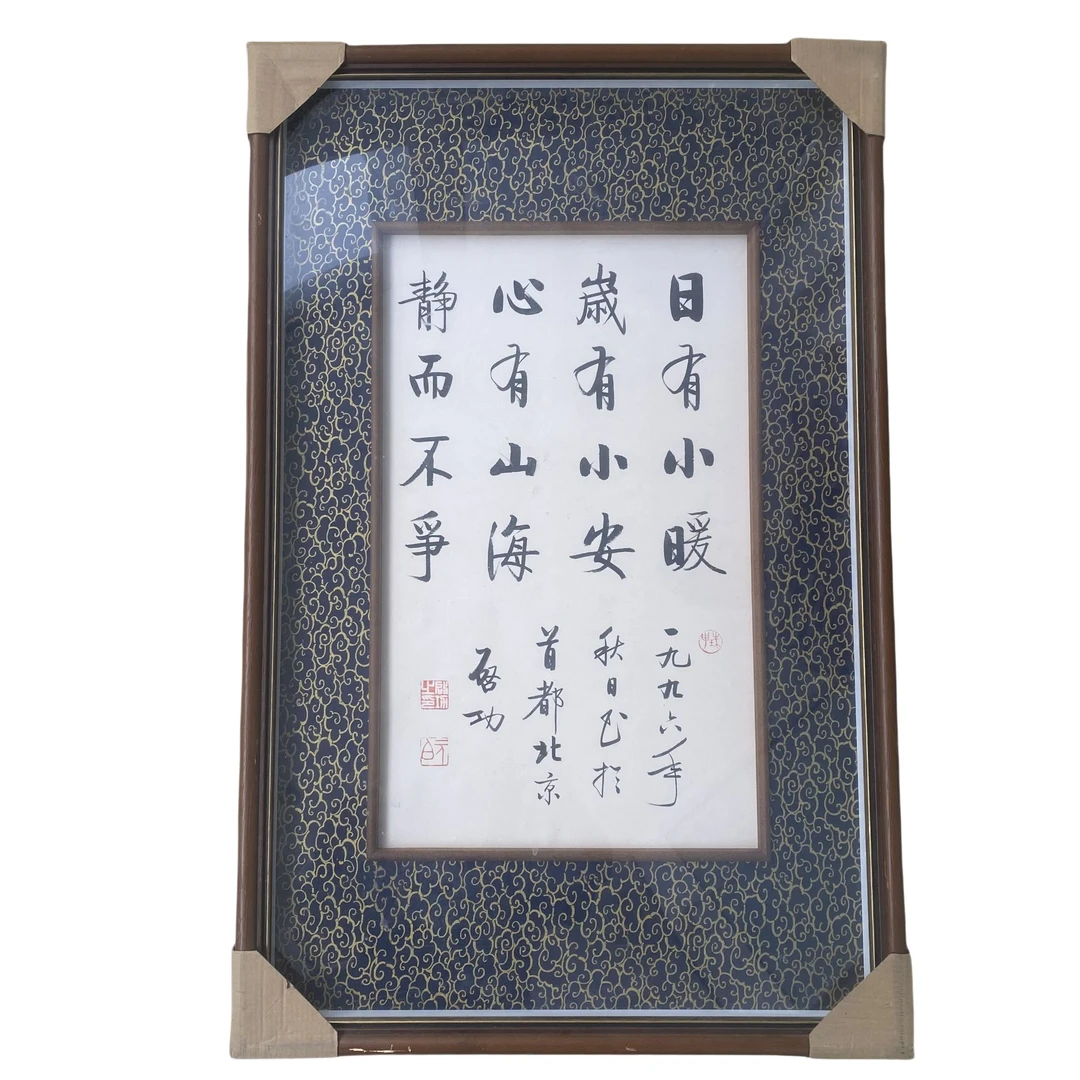 日有小暖
歲有小安
心有山海
靜而不爭
一九九六年
秋日书於
首都北京
啓功